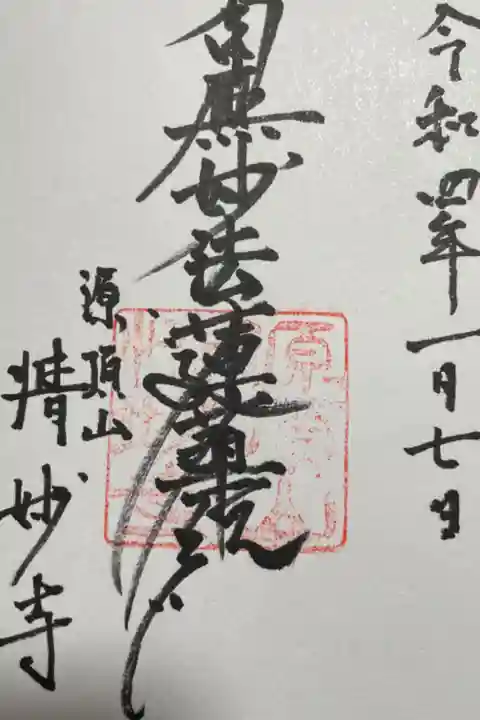 令和四年一月七日
南無妙法蓮華経
源頂山
精妙寺